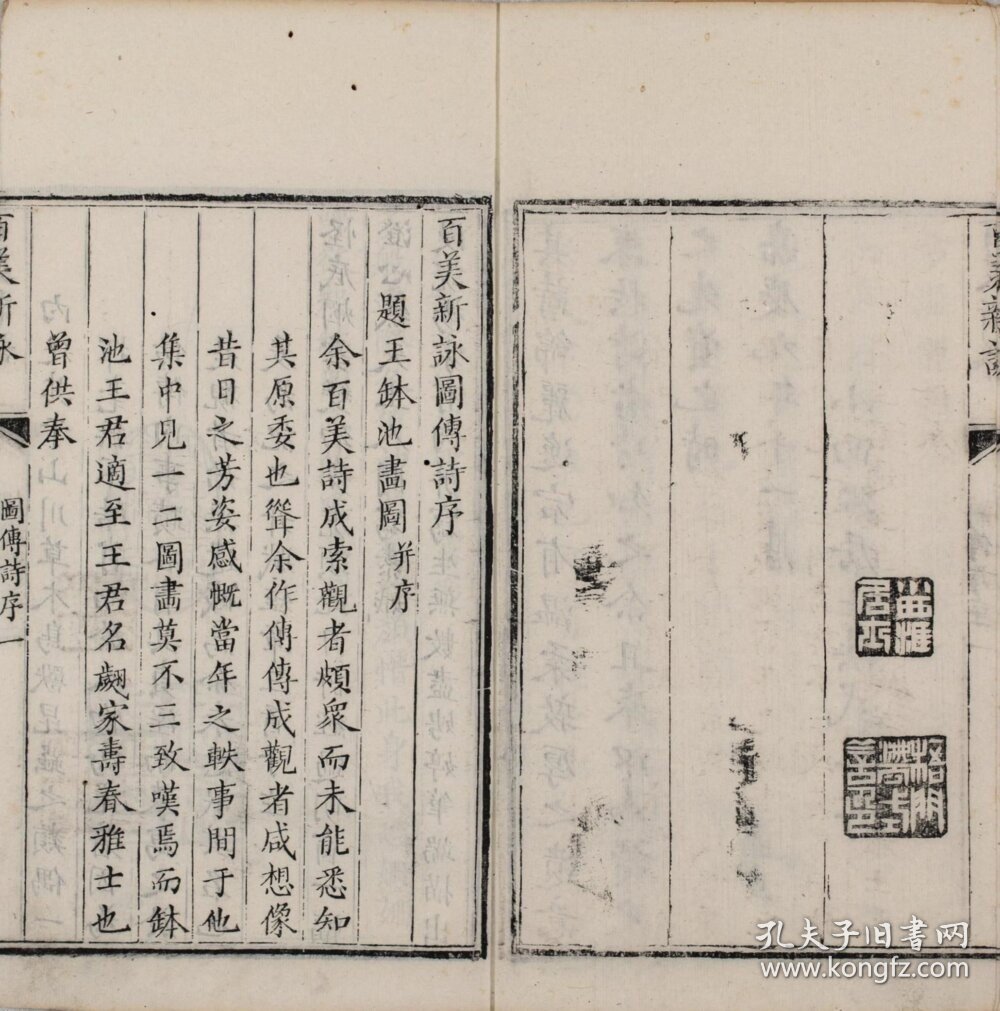 百美新詠
百美新詠圖傳詩序
題王缽池畫圖 并序
余百美詩成索觀者頗衆而未能悉知
其原委也聳余作傳傳成觀者咸想像
昔日之芳姿感慨當年之軼事間于他
集中見一二圖畫莫不三致嘆焉而缽
池王君適至王君名翽家壽春雅士也
曾供奉
百美新詠
圖傳詩序
一
孔夫子旧书网
www.kongfz.com